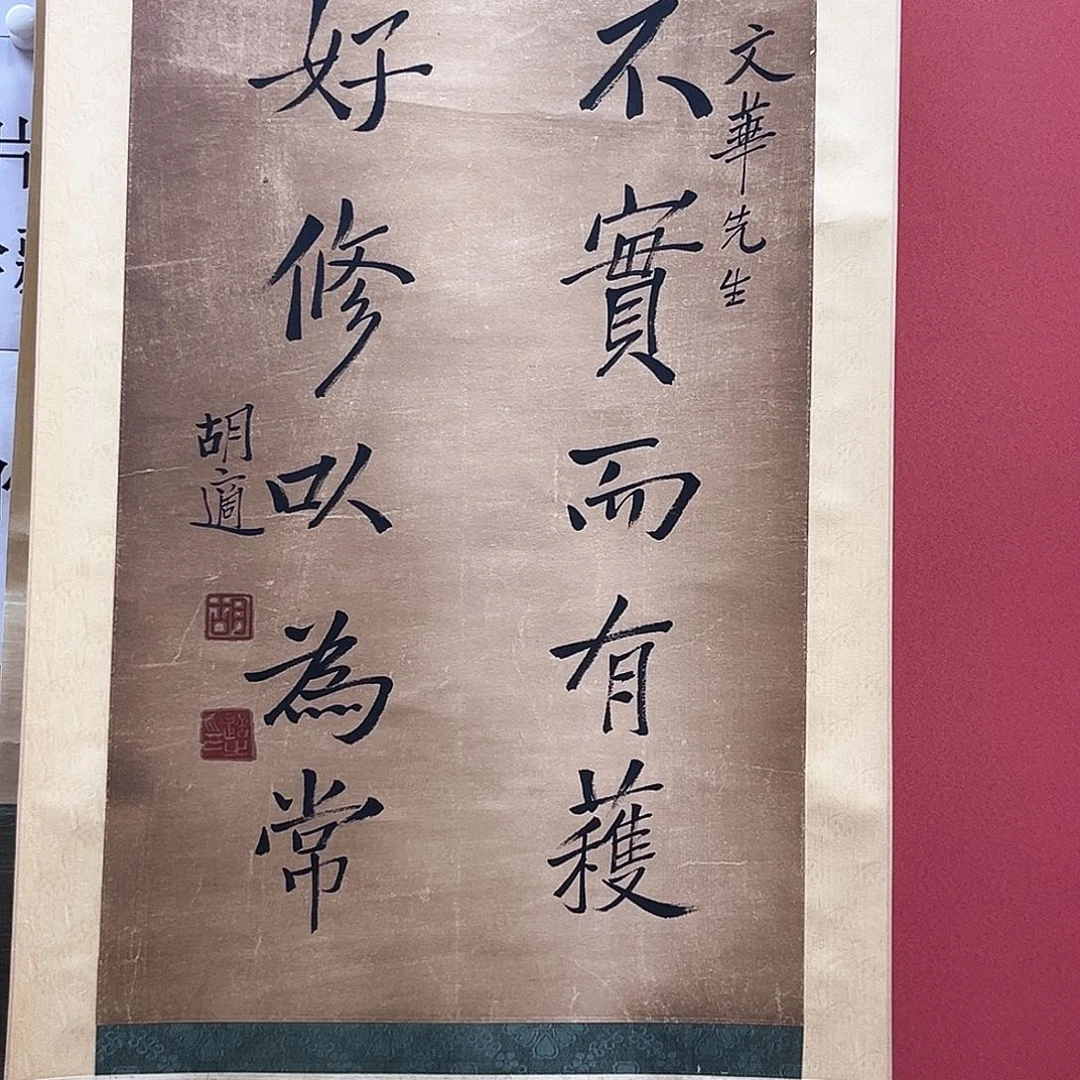 文華先生
不實而有穫
好修以為常
胡適
胡